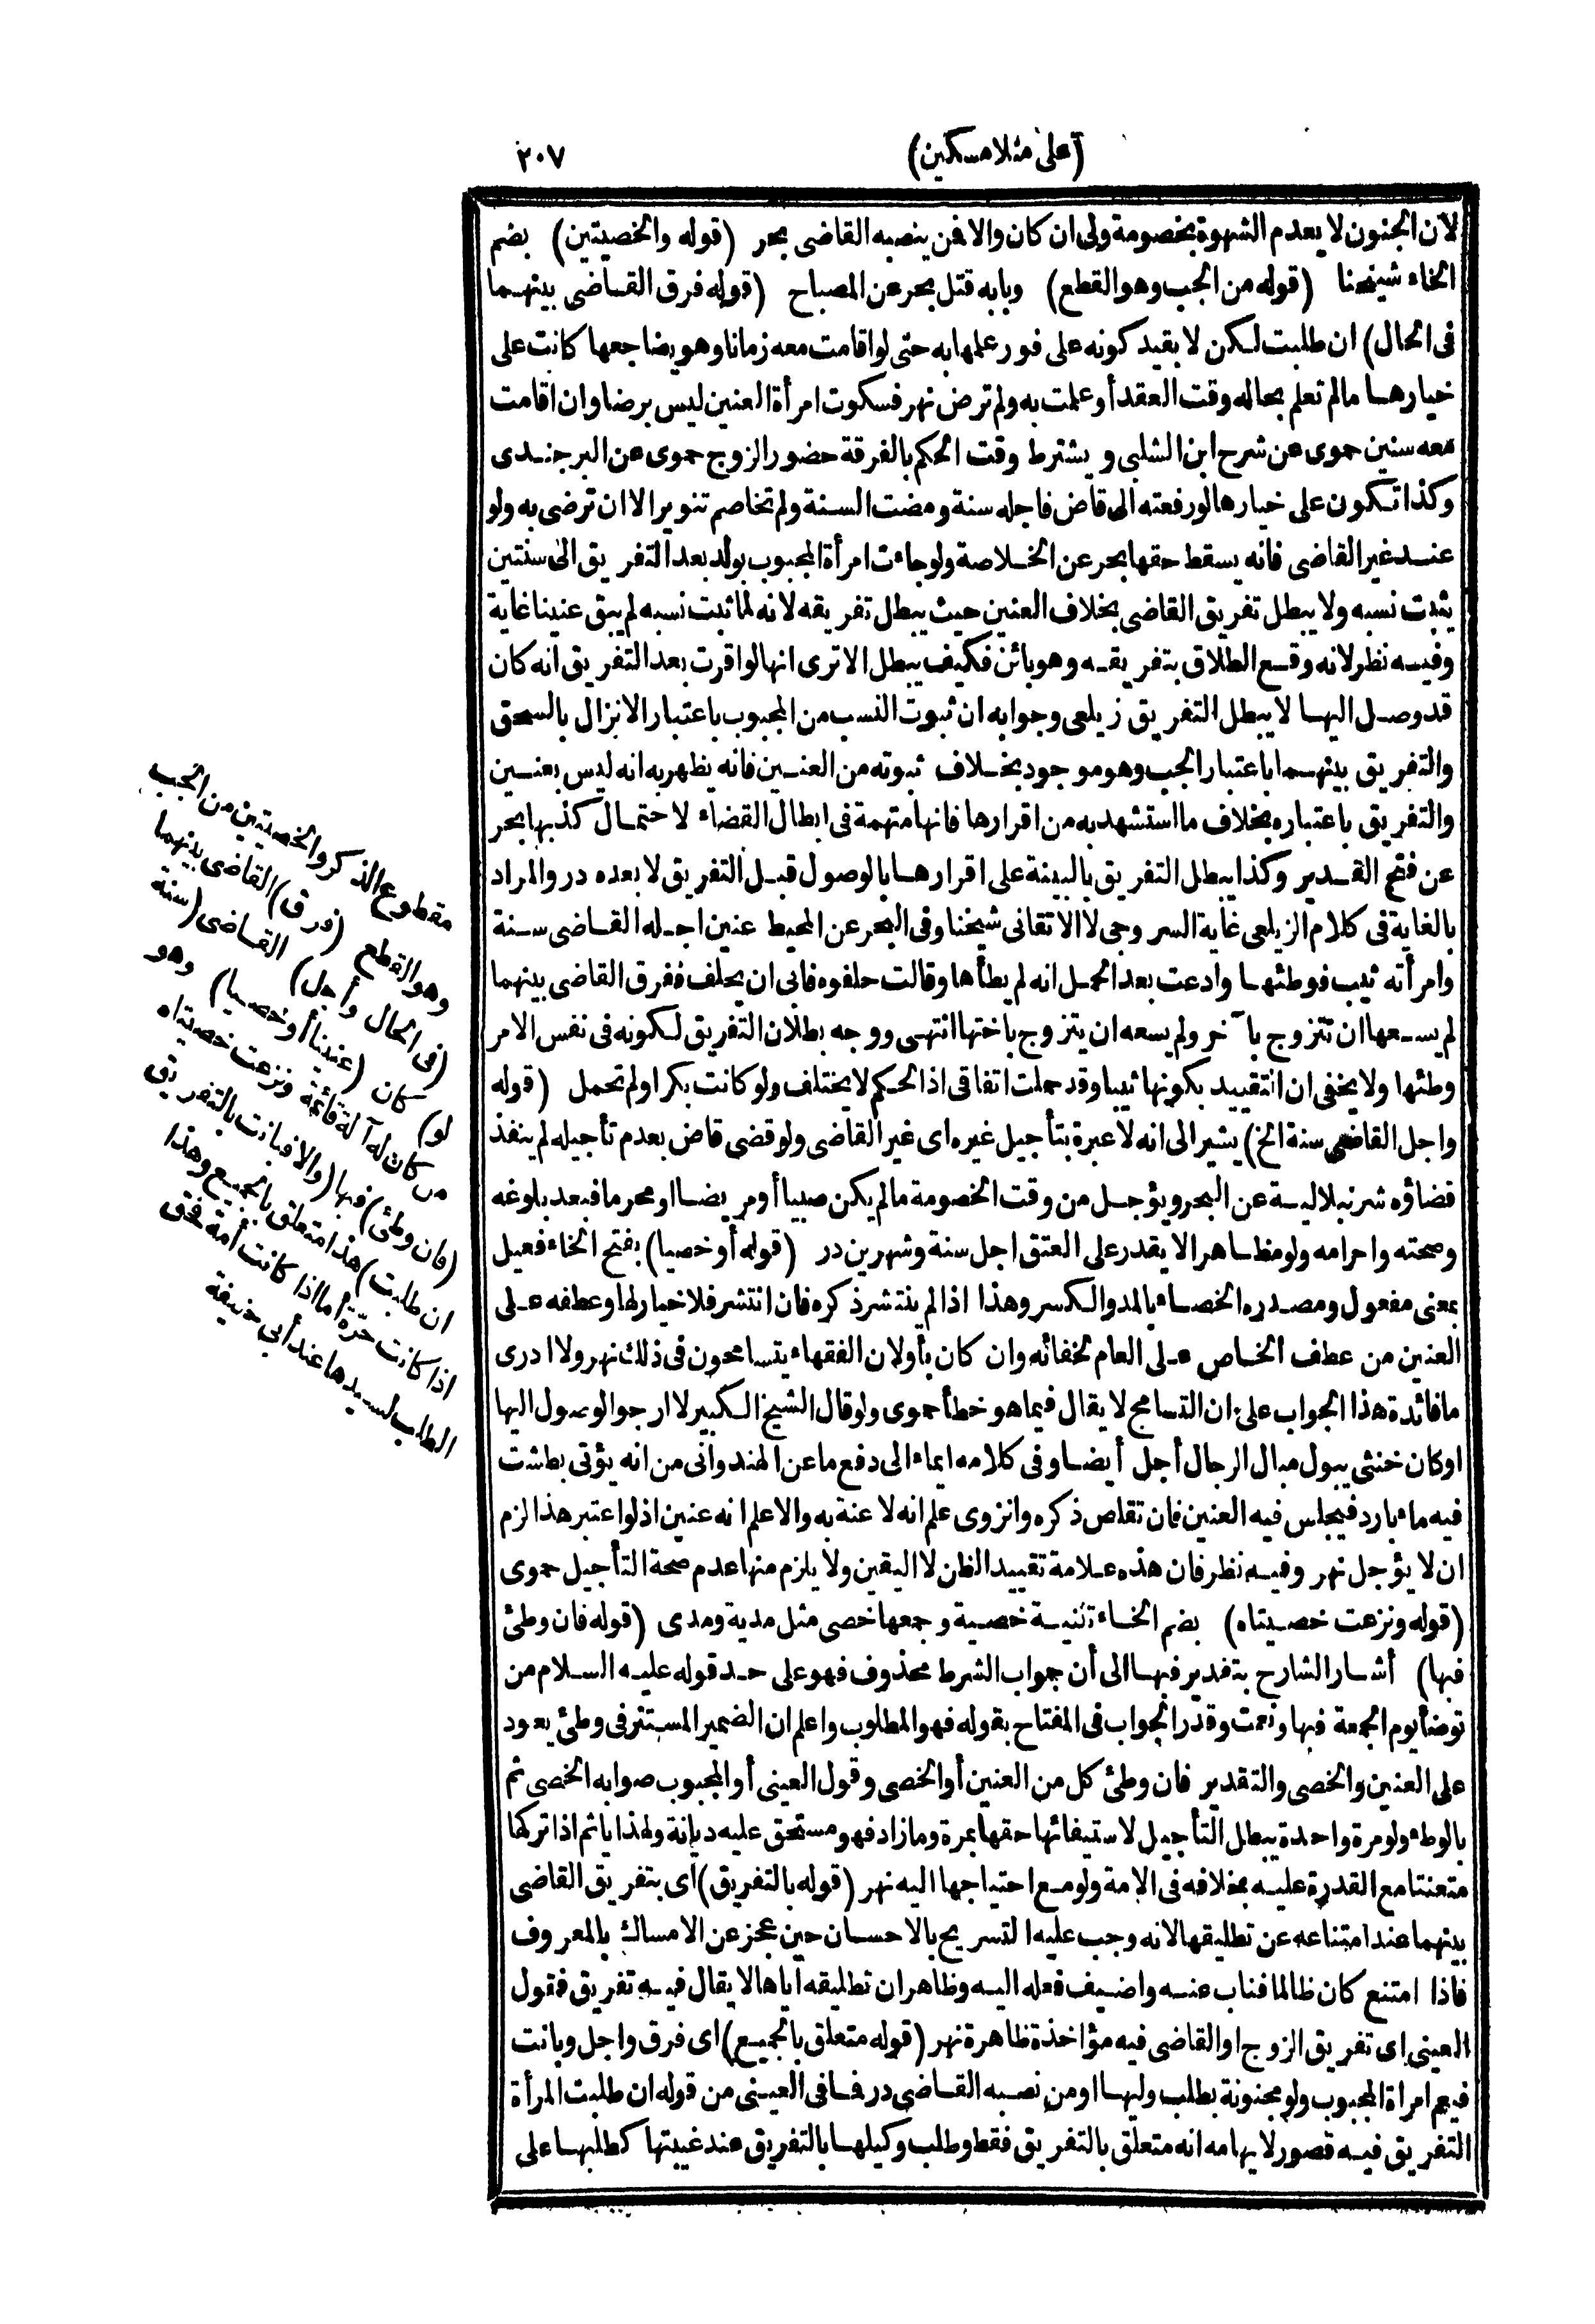 (على منلامسكين)
٢٠٧
لان الجنون لا يعدم الشهوة بخصومة ولى ان كان والا فمن ينصبه القاضى بحر (قوله والخصيتين) بضم
الخاء شيخنا (قوله من الجب وهو القطع) وبابه قتل بحر عن المصباح (قوله فرق القاضى بينهما
فى الحال) ان طلبت لكن لا بقيد كونه على فور علمها به حتى لو اقامت معه زمانا وهو يضاجعها كانت على
خيارها مالم تعلم بحاله وقت العقد أو علمت به ولم ترض نهر فسكوت امرأة العنين ليس برضا وان اقامت
معه سنين حموى عن شرح ابن الشلبى ويشترط وقت الحكم بالفرقة حضور الزوج حموى عن البرجندى
وكذا تكون على خيارها لو رفعته الى قاض فاجله سنة ومضت السنة ولم تخاصم تنوير الا ان ترضى به ولو
عند غير القاضى فانه يسقط حقها بحر عن الخلاصة ولو جاءت امرأة المجبوب بولد بعد التفريق الى سنتين
يثبت نسبه ولا يبطل تفريق القاضى بخلاف العنين حيث يبطل تفريقه لانه لما ثبت نسبه لم يبق عنينا غاية
وفيه نظر لانه وقع الطلاق بتفريقه وهو بائن فكيف يبطل الا ترى انها لو اقرت بعد التفريق انه كان
قد وصل اليها لا يبطل التفريق زيلعى وجوابه ان ثبوت النسب من المجبوب باعتبار الانزال بالسحق
والتفريق بينهما باعتبار الجب وهو موجود بخلاف ثبوته من العنين فانه يظهر به انه ليس بعنين
والتفريق باعتباره بخلاف ما استشهد به من اقرارها فانها متهمة فى ابطال القضاء لاحتمال كذبها بحر
عن فتح القدير وكذا يبطل التفريق بالبينة على اقرارها بالوصول قبل التفريق لا بعده درر والمراد
بالغاية فى كلام الزيلعى غاية السروجى لا الاتقانى شيخنا وفى البحر عن المحيط عنين اجله القاضى سنة
وامرأته ثيب فوطئها وادعت بعد الحمل انه لم يطأها وقالت حلفوه فابى ان يحلف ففرق القاضى بينهما
لم يسعها ان تتزوج بآخر ولم يسعه ان يتزوج باختها انتهى ووجه بطلان التفريق لكونه فى نفس الامر
وطئها ولا يخفى ان التقييد بكونها ثيبا وقد حملت اتفاقى اذ الحكم لا يختلف ولو كانت بكرا ولم تحمل (قوله
واجل القاضى سنة الخ) يشير الى انه لا عبرة بتأجيل غيره اى غير القاضى ولو قضى قاض بعدم تأجيله لم ينفذ
قضاؤه شرنبلالية عن البحر ويؤجل من وقت الخصومة مالم يكن صبيا أو مريضا او محرما فبعد بلوغه
وصحته واحرامه ولو مظاهرا لا يقدر على العتق اجل سنة وشهرين در (قوله أو خصيا) بفتح الخاء فعيل
بمعنى مفعول ومصدره الخصاء بالمد والكسر وهذا اذا لم ينتشر ذكره فان انتشر فلا خيار لها وعطفه على
العنين من عطف الخاص على العام لخفائه وان كان بأو لان الفقهاء يتسامحون فى ذلك نهر ولا ادرى
ما فائدة هذا الجواب على ان التسامح لا يقال فيما هو خطأ حموى ولو قال الشيخ الكبير لا ارجو الوصول اليها
او كان خنثى يبول مبال الرجال أجل أيضا وفى كلامه ايماء الى دفع ما عن الهندوانى من انه يؤتى بطشت
فيه ماء بارد فيجلس فيه العنين فان تقلص ذكره وانزوى علم انه لا عنة به والا علم انه عنين اذ لو اعتبر هذا لزم
ان لا يؤجل نهر وفيه نظر فان هذه علامة تفييد الظن لا اليقين ولا يلزم منها عدم صحة التأجيل حموى
(قوله ونزعت خصيتاه) بضم الخاء تثنية خصية وجمعها خصى مثل مدية ومدى (قوله فان وطئ
فبها) أشار الشارح بتقدير فبها الى أن جواب الشرط محذوف فهو على حد قوله عليه السلام من
توضأ يوم الجمعة فبها ونعمت وقدر الجواب فى المفتاح بقوله فهو المطلوب واعلم ان الضمير المستتر فى وطئ يعود
على العنين والخصى والتقدير فان وطئ كل من العنين أو الخصى وقول العينى أو المجبوب صوابه الخصى ثم
بالوطء ولو مرة واحدة يبطل التأجيل لاستيفائها حقها بمرة وما زاد فهو مستحق عليه ديانة ولهذا ياثم اذا تركها
متعنتا مع القدرة عليه بخلافه فى الامة ولو مع احتياجها اليه نهر (قوله بالتفريق) اى بتفريق القاضى
بينهما عند امتناعه عن تطليقها لانه وجب عليه التسريح بالاحسان حين عجز عن الامساك بالمعروف
فاذا امتنع كان ظالما فناب عنه واضيف فعله اليه وظاهر ان تطليقه اياها لا يقال فيه تفريق فقول
العينى اى تفريق الزوج او القاضى فيه مؤاخذة ظاهرة نهر (قوله متعلق بالجميع) اى فرق واجل وبانت
فيعم امراة المجبوب ولو مجنونة بطلب وليها او من نصبه القاضى در فما فى العينى من قوله ان طلبت المرأة
التفريق فيه قصور لايهامه انه متعلق بالتفريق فقط وطلب وكيلها بالتفريق عند غيبتها كطلبها على
مقطوع الذكر والخصيتين من الجب
وهو القطع (فرق) القاضى بينهما
(فى الحال وأجل) القاضى (سنة
لو) كان (عنينا أو خصيا) وهو
من كان له آلة قائمة ونزعت خصيتاه
(فان وطئ) فبها (والا فبانت بالتفريق
ان طلبت) هذا متعلق بالجميع وهذا
اذا كانت حرة أما اذا كانت أمة فحق
الطلب لسيدها عند أبى حنيفة